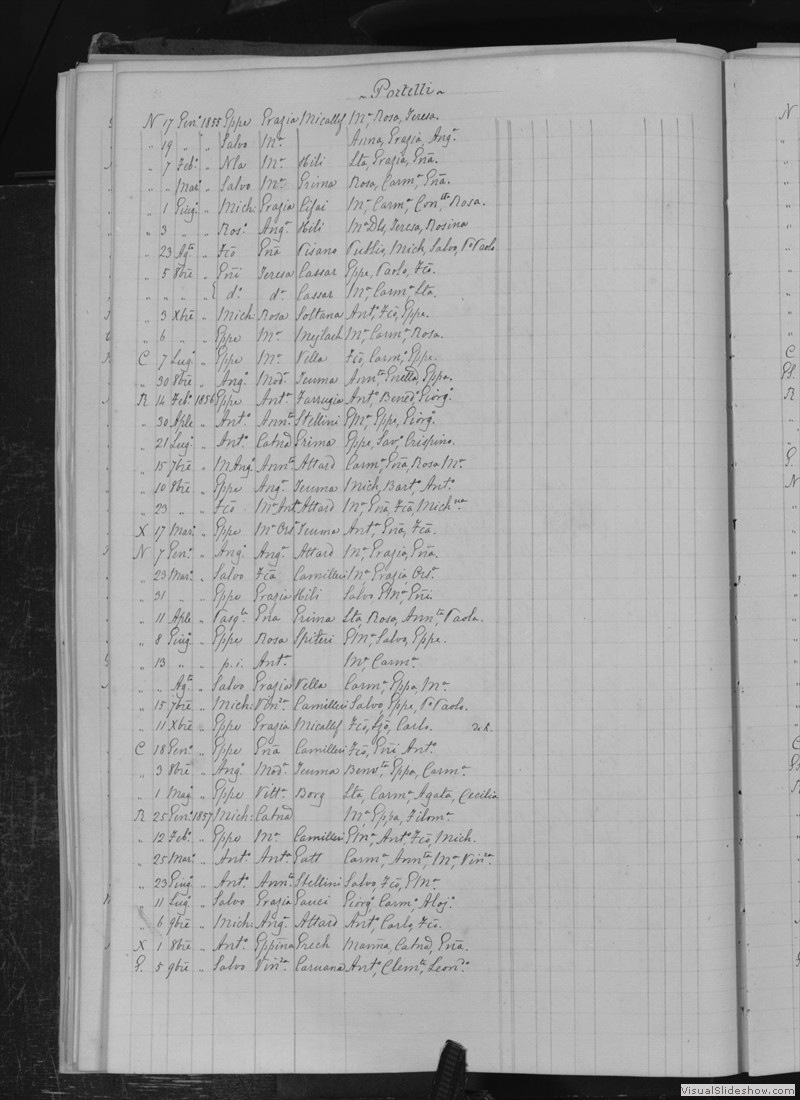 ~ Portelli ~
N 17 Gen.º 1855 Eppe Grazia Micallef M.ª, Rosa, Teresa.
„ 19 „ „ Salvo M.ª Anna, Grazia, Ang.ª
„ 7 Feb.º „ Nla M.ª Hili Lta, Grazia, Gña.
„ „ Mar.º „ Salvo M.ª Grima Rosa, Carm.ª, Gña.
„ 1 Giug.º „ Mich: Grazia M.ª, Carm.ª, Con.tta, Rosa.
„ 3 „ „ Ros.º Ang.ª Hili M.ª Dls, Teresa, Rosina
„ 23 Ag.to „ Fcõ Gña Pisano Publio, Mich, Salvo, P.º Paolo
„ 5 8bre „ Gñi Teresa Cassar Eppe, Paolo, Fcõ.
„ „ „ „ { d.º d.ª Cassar M.ª, Carm.ª, Lta.
„ 3 Xbre „ Mich: Rosa Soltana Ant.º, Fcõ, Eppe.
„ 6 „ „ Eppe M.ª Mejlach M.ª, Carm.ª, Rosa.
C 7 Lug.º „ Eppe M.ª Vella Fcõ, Carm.º, Eppe.
„ 30 8bre „ Ang.º Mod.ª Teuma Ann.ta, Eppa.
R 14 Feb.º 1856 Eppe Ant.ª Farrugia Ant.º, Bened.º, Giorg.º
„ 30 Aple „ Ant.º Ann.ta Stellini GM.ª, Eppe, Giorg.º
„ 21 Lug.º „ Ant.º Catnã Grima Eppe, Sav.º, Crispino.
„ 15 7bre „ MAng.º Ann.ta Attard Carm.ª, Gña, Rosa M.ª
„ 10 8bre „ Eppe Ang.ª Teuma Mich, Bart.º, Ant.º
„ 23 „ „ Fcõ M.ª Ant.ª Attard M.ª, Gña, Fcã, Mich.na
X 17 Mar.º „ Eppe M.ª Ors.ª Teuma Ant.ª, Gña, Fcã.
N 7 Gen.º „ Ang.º Ang.ª Attard M.ª, Grazia, Gña.
„ 23 Mar.º „ Salvo Fcã Camilleri M.ª, Grazia, Ors.ª
„ 31 „ „ Eppe Grazia Hili Salvo GM.ª, Gñi
„ 11 Aple „ Pasq.le Gña Grima Lta, Rosa, Ann.ta, Paola.
„ 8 Giug.º „ Eppe Rosa Spiteri GM.ª, Salvo, Eppe.
„ 13 „ „ p. i. Ant.ª M.ª, Carm.ª
„ „ Ag.to „ Salvo Grazia Vella Carm.ª, Eppa, M.ª
„ 15 7bre „ Mich: Vin.za Camilleri Salvo, Eppe, P.º Paolo.
„ 11 Xbre „ Eppe Grazia Micallef Fcõ, Carlo.
C 18 Gen.º „ Eppe Gña Camilleri Fcõ, Gñi Ant.º
„ 3 8bre „ Ang.º Mod.ª Teuma Ben.ta, Eppa, Carm.ª
„ 1 Mag.º „ Eppe Vitt.ª Borg Lta, Carm.ª, Agata, Cecilia
R 25 Gen.º 1857 Mich: Catnã M.ª, Eppa, Filom.ª
„ 12 Feb.º „ Eppe M.ª Camilleri GM.ª, Ant.º, Fcõ, Mich.
„ 25 Mar.º „ Ant.º Ant.ª Gatt Carm.ª, Ann.ta, M.ª, Vin.za
„ 23 Giug.º „ Ant.º Ann.ta Stellini Salvo, Fcõ, GM.ª
„ 11 Lug.º „ Salvo Grazia Gauci Giorg.º Carm.º, Aloj.º
„ 6 9bre „ Mich: Ang.ª Attard Ant.º, Carlo, Fcõ.
X 1 8bre „ Ant.º Eppina Grech Marña, Catnã, Gña.
G. 5 9bre „ Salvo Vin.za Caruana Ant.º, Clem.te, Leon.do
VisualSlideshow.com